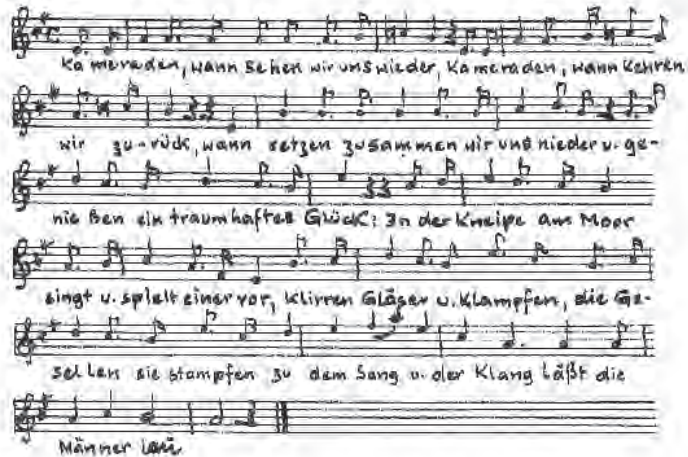 Kameraden, wann sehen wir uns wieder, Kameraden, wann kehren
wir zu-rück, wann setzen zusammen wir uns nieder u. ge-
nie ßen ein traumhaftes Glück: In der Kneipe am Moor
singt u. spielt einer vor, Klirren Gläser u. Klampfen, die Ge-
sel len sie stampfen zu dem Sang u. der Klang läßt die
Männer